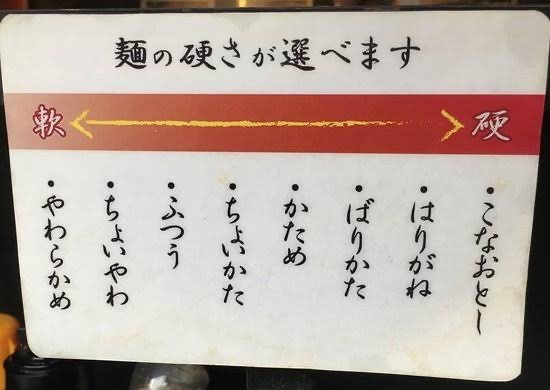 麺の硬さが選べます
軟
硬
・こなおとし
・はりがね
・ばりかた
・かため
・ちょいかた
・ふつう
・ちょいやわ
・やわらかめ